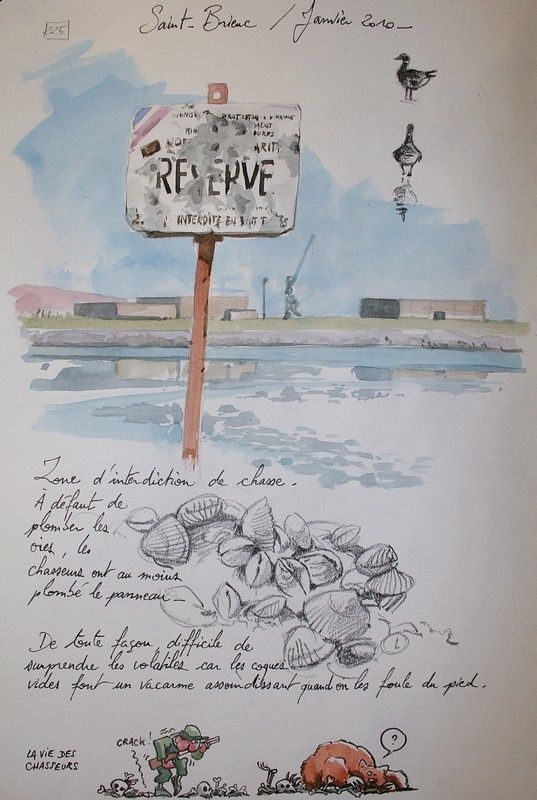 225
Saint-Brieuc / Janvier 2010
PROTECTION
RESERVE
INTERDITE EN TOUT T
Zone d'interdiction de chasse.
A défaut de
plomber les
oies, les
chasseurs ont au moins
plombé le panneau
De toute façon, difficile de
surprendre les volatiles car les coques
vides font un vacarme assourdissant quand on les foule du pied.
LA VIE DES
CHASSEURS
CRACK!
?